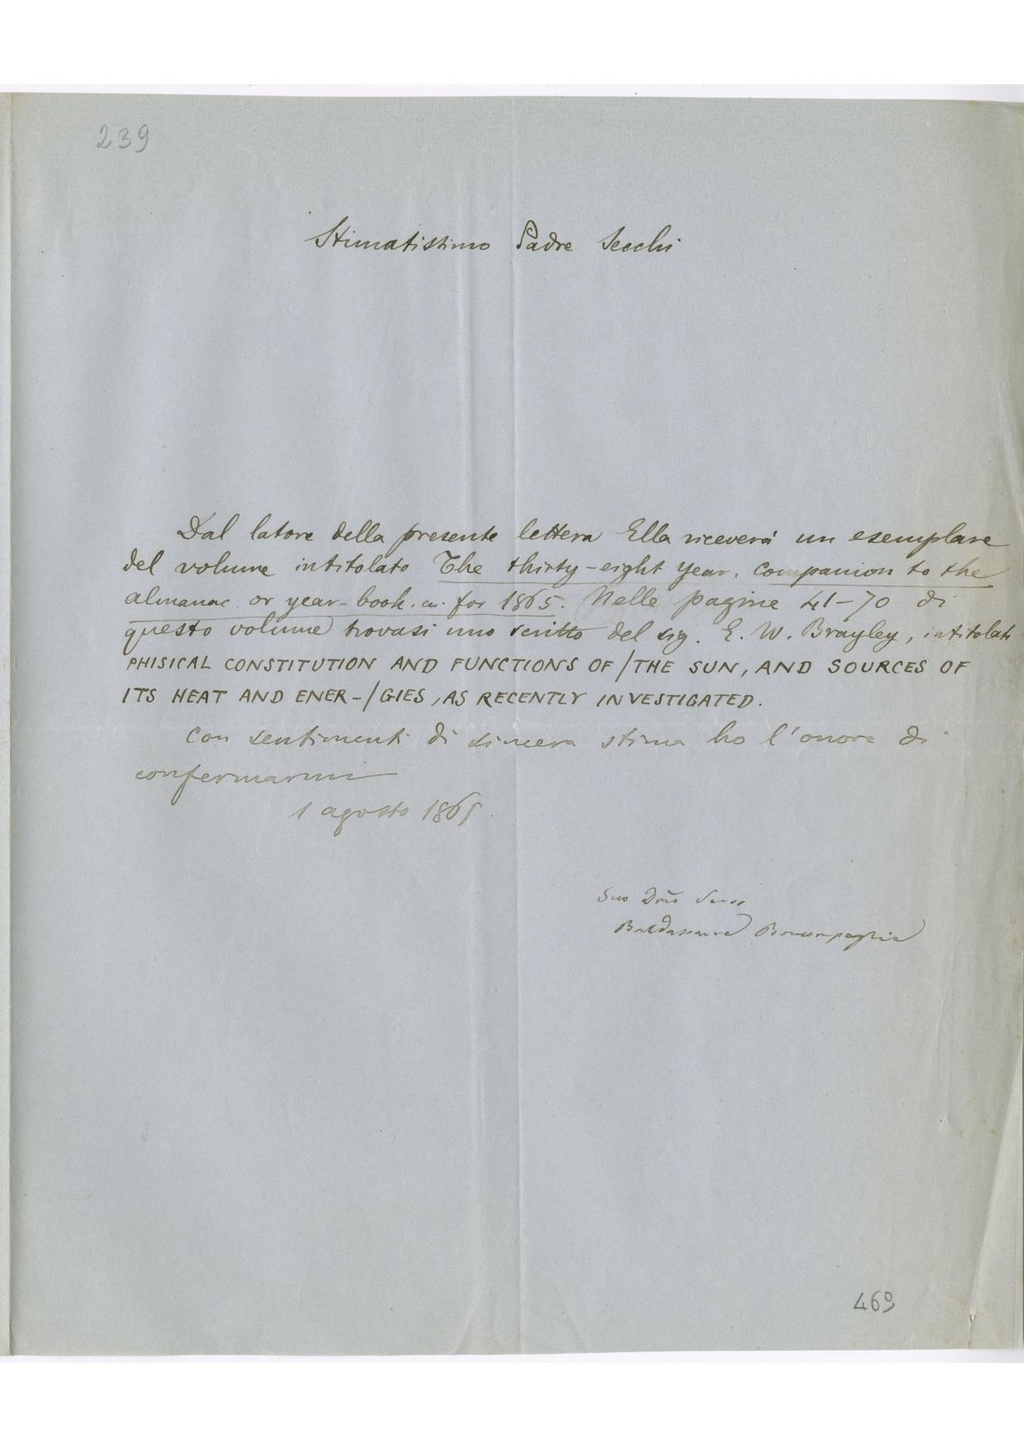 239
Stimatissimo Padre Secchi
Dal latore della presente lettera Ella riceverà un esemplare
del volume intitolato The thirty-eight year. Companion to the
almanac or year-book. for 1865. Nelle pagine 41-70 di
questo volume trovasi uno scritto del sig. E. W. Brayley, intitolato
PHISICAL CONSTITUTION AND FUNCTIONS OF / THE SUN, AND SOURCES OF
ITS HEAT AND ENER-/GIES, AS RECENTLY INVESTIGATED.
Con sentimenti di sincera stima ho l'onore di
confermarmi
1 agosto 1865
Suo
Baldassarre Boncompagni
469